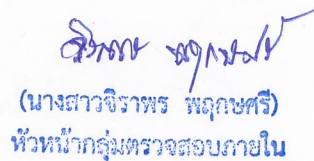 (นางสาวจิราพร พฤกษศรี)
หัวหน้ากลุ่มตรวจสอบภายใน